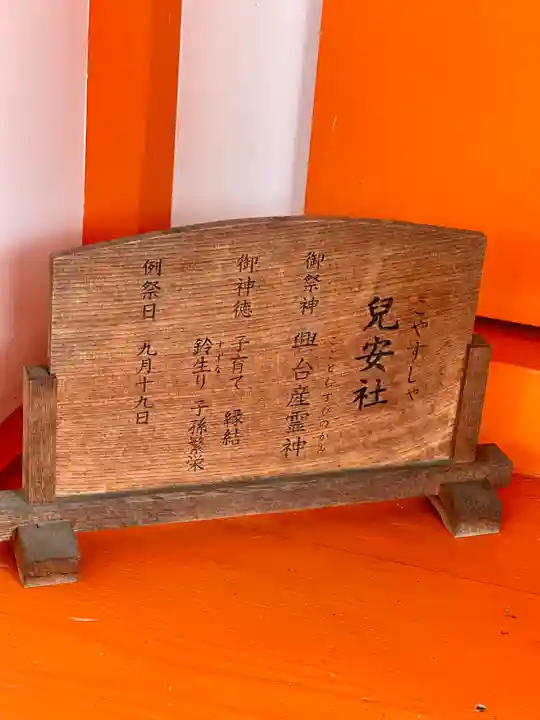 こやすしゃ
兒安社
御祭神 興台産霊神
こごとむすびのかみ
御神徳 子育て 縁結
鈴生り 子孫繁栄
すずな
例祭日 九月十九日